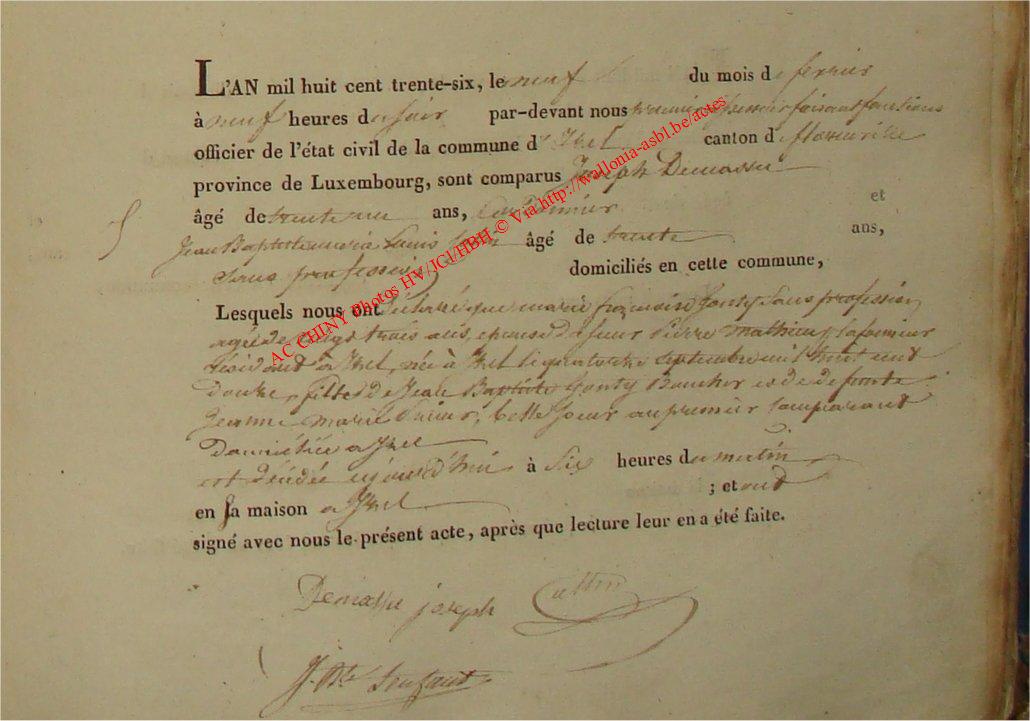 L'AN mil huit cent trente-six, le neuf du mois de fevrier
à neuf heures du soir par-devant nous premier faisant fonctions
officier de l'état civil de la commune d' Izel canton de florenville
province de Luxembourg, sont comparus Joseph Demasse
âgé de trente ans, et
Jean Baptiste marie Louis âgé de trente ans,
sans profession domiciliés en cette commune,
Lesquels nous ont déclaré que marie françoise Gonty sans profession
agée de vingt trois ans, epouse de Pierre mathieu
résidant à Izel, née à Izel le quatorze septembre mil huit cent
douze, fille de Jean Baptiste Gonty et de defunte
Jeanne marie belle soeur au premier comparant
domiciliée a Izel
est décédée aujourd'hui à six heures du matin
en sa maison a Izel ; et ont
signé avec nous le présent acte, après que lecture leur en a été faite.
Demasse joseph
J. Bte
AC CHINY Photos HV/JCl/HBH © Via http://wallonia-asbl.be/actes